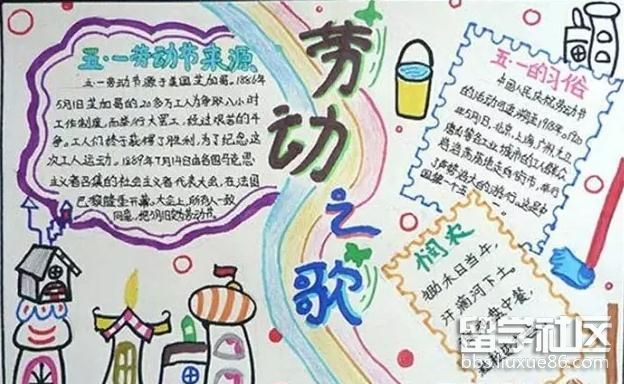 五·一劳动节来源
五·一劳动节源于美国芝加哥。1886年
5月1日芝加哥的20多万工人为争取八小时
工作制度,而举行大罢工,经过艰苦的斗
争。工人们终于获得了胜利,为了纪念这
次工人运动。1889年7月14日由各国马克思
主义者召集的社会主义者代表大会,在法国
巴黎隆重开幕。大会上,所有人一致
同意,把5月1日定为劳动节。
劳动之歌
五·一的习俗
中国人民庆祝劳动节
的活动可追溯至1918年。1920
年5月1日,北京,上海,广州,九江
唐山等各工业城市的工人群众
浩浩荡荡走向街市,举行
了声势浩大的游行。这是中
国第一个五一
悯农
锄禾日当午,
汗滴河下土。
盘中餐,
留学社区
bbs.liuxue86.com